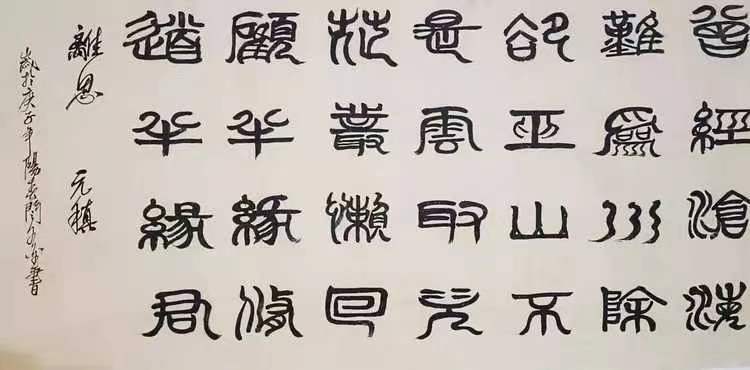 曾經滄海
難爲水除
卻巫山不
是雲取次
花叢懶回
顧半緣修
道半緣君
離思 元稹
歲於庚子年陽春 書